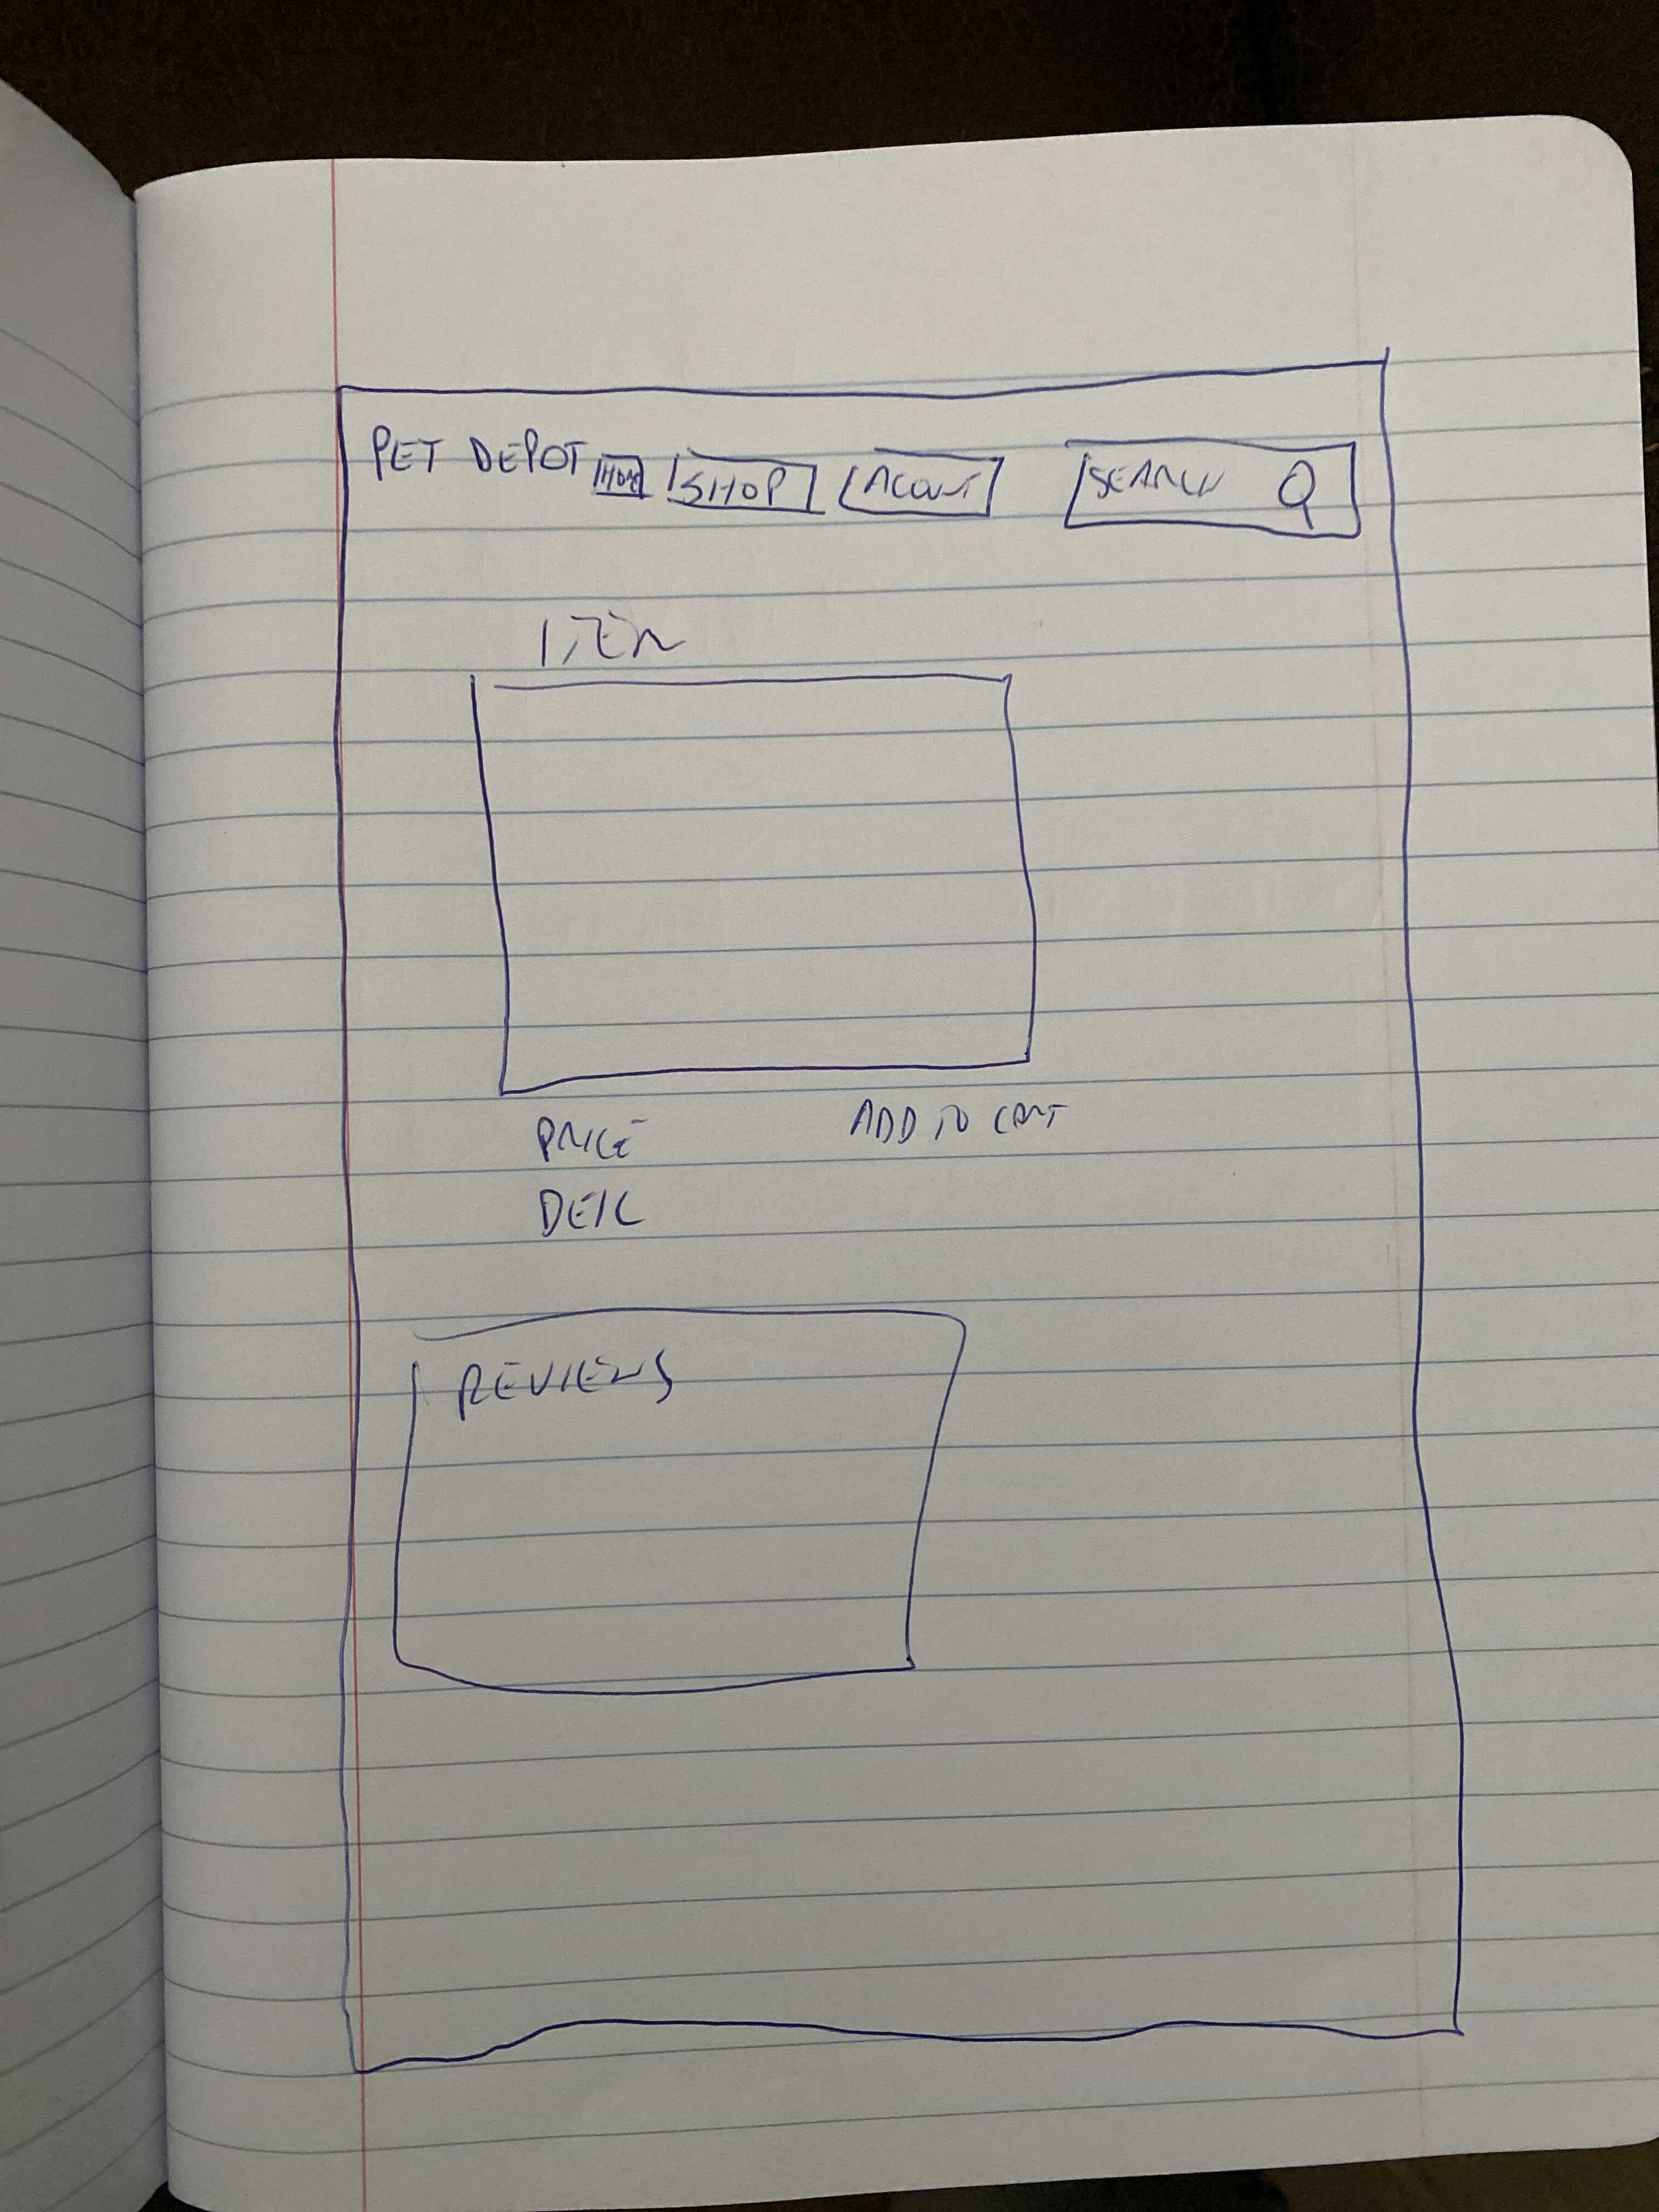 PET DEPOT HOME SHOP ACOUNT SEARCH
ITEM
PRICE ADD TO CART
DESC
REVIEWS